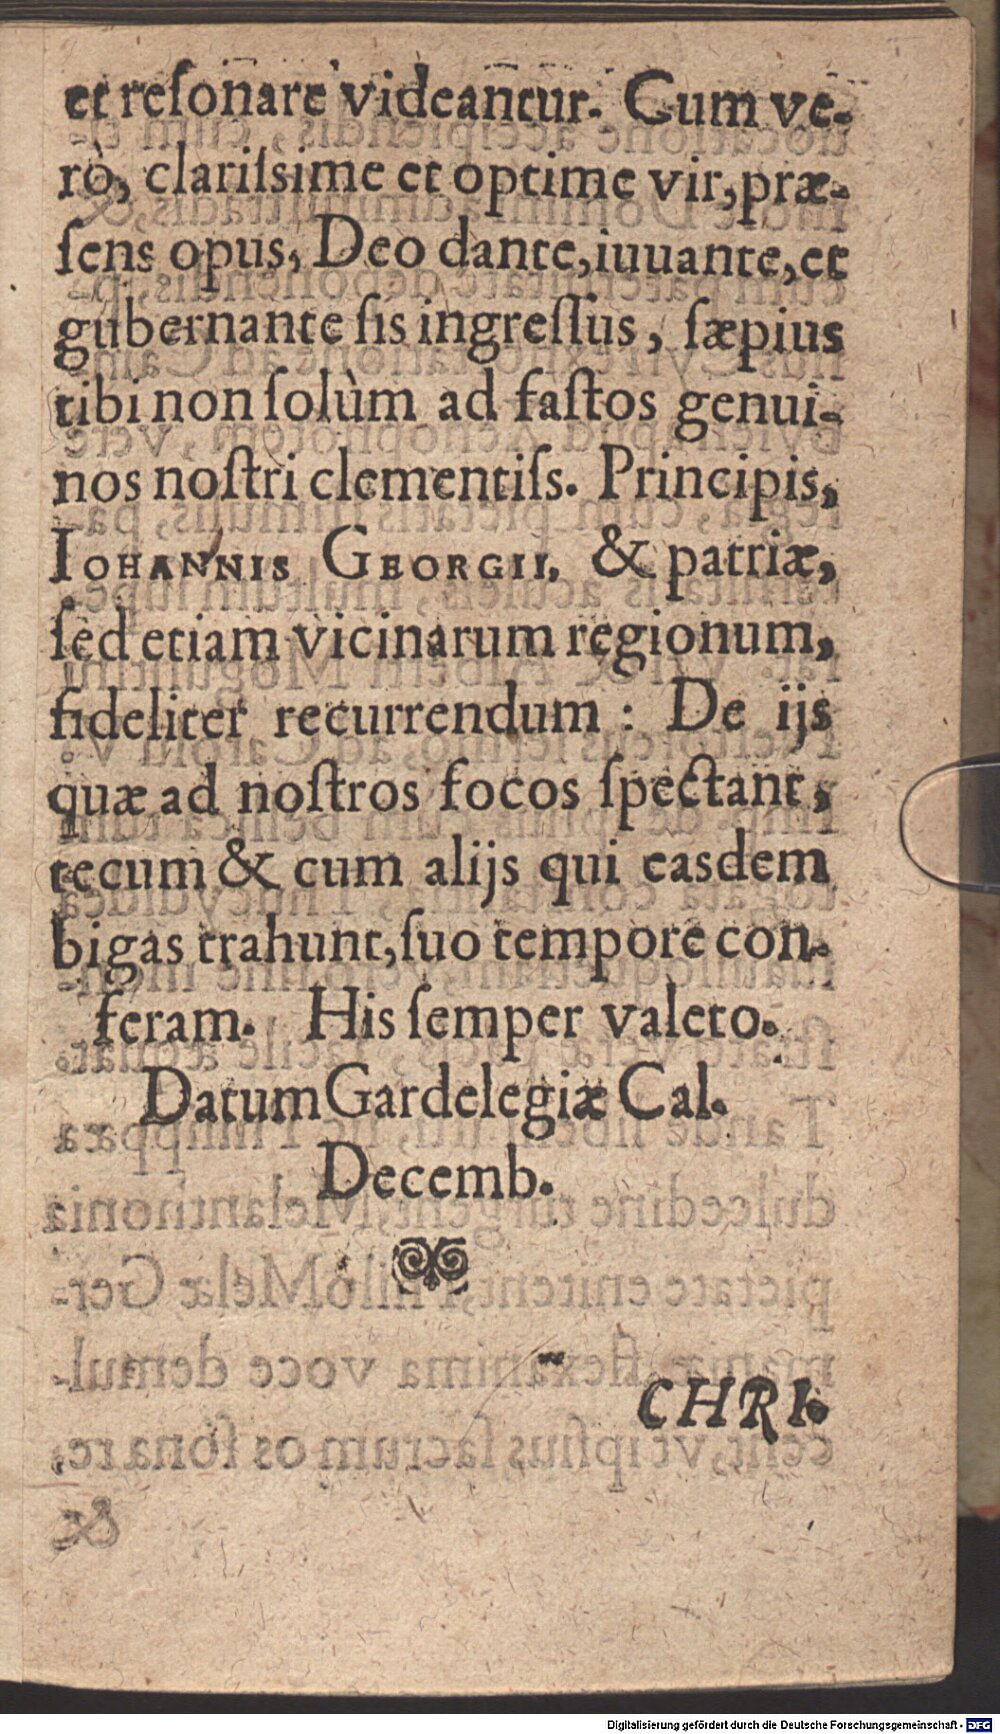 et reſonare videantur. Cum ve-
rò, clariſsime et optime vir, præ-
ſens opus, Deo dante, iuvante, et
gubernante ſis ingreſſus, ſæpius
tibi non ſolùm ad faſtos genui-
nos noſtri clementiſs. Principis,
IOHANNIS GEORGII, & patriæ,
ſed etiam vicinarum regionum,
fideliter recurrendum: De ijs
quæ ad noſtros focos ſpectant,
tecum & cum alijs qui easdem
bigas trahunt, ſuo tempore con-
feram. His ſemper valeto.
Datum Gardelegiæ Cal.
Decemb.
CHRI-
Digitalisierung gefördert durch die Deutsche Forschungsgemeinschaft - DFG